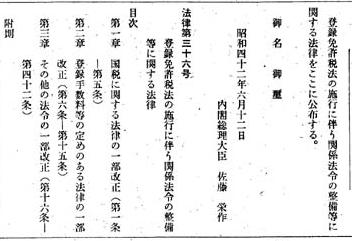 登録免許税法の施行に伴う関係法令の整備等に
関する法律をここに公布する。
御名 御璽
昭和四十二年六月十二日
内閣総理大臣 佐藤 栄作
法律第三十六号
登録免許税法の施行に伴う関係法令の整備
等に関する法律
目次
第一章 国税に関する法律の一部改正(第一条
―第五条)
第二章 登録手数料等の定めのある法律の一部
改正(第六条―第十五条)
第三章 その他の法令の一部改正(第十六条―
第四十二条)
附則